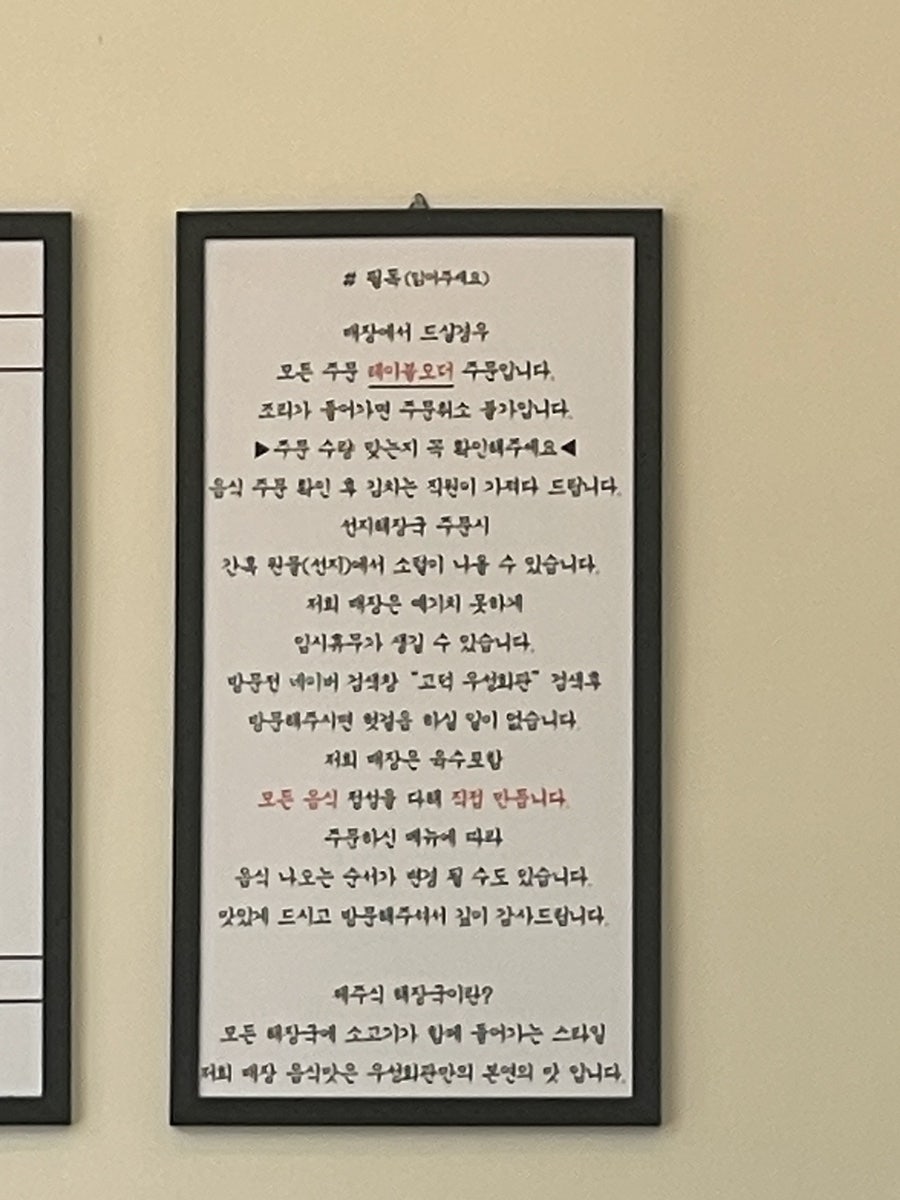 # 필독(읽어주세요)
매장에서 드실경우
모든 주문 테이블오더 주문입니다.
조리가 들어가면 주문취소 불가입니다.
▶주문 수량 맞는지 꼭 확인해주세요◀
음식 주문 확인 후 김치는 직원이 가져다 드립니다.
선지해장국 주문시
간혹 원물(선지)에서 소털이 나올 수 있습니다.
저희 매장은 예기치 못하게
임시휴무가 생길 수 있습니다.
방문전 네이버 검색창 "고덕 우성회관" 검색후
방문해주시면 헛걸음 하실 일이 없습니다.
저희 매장은 육수포함
모든 음식 정성을 다해 직접 만듭니다.
주문하신 메뉴에 따라
음식 나오는 순서가 변경 될 수도 있습니다.
맛있게 드시고 방문해주셔서 깊이 감사드립니다.
제주식 해장국이란?
모든 해장국에 소고기가 함께 들어가는 스타일
저희 매장 음식맛은 우성회관만의 본연의 맛 입니다.